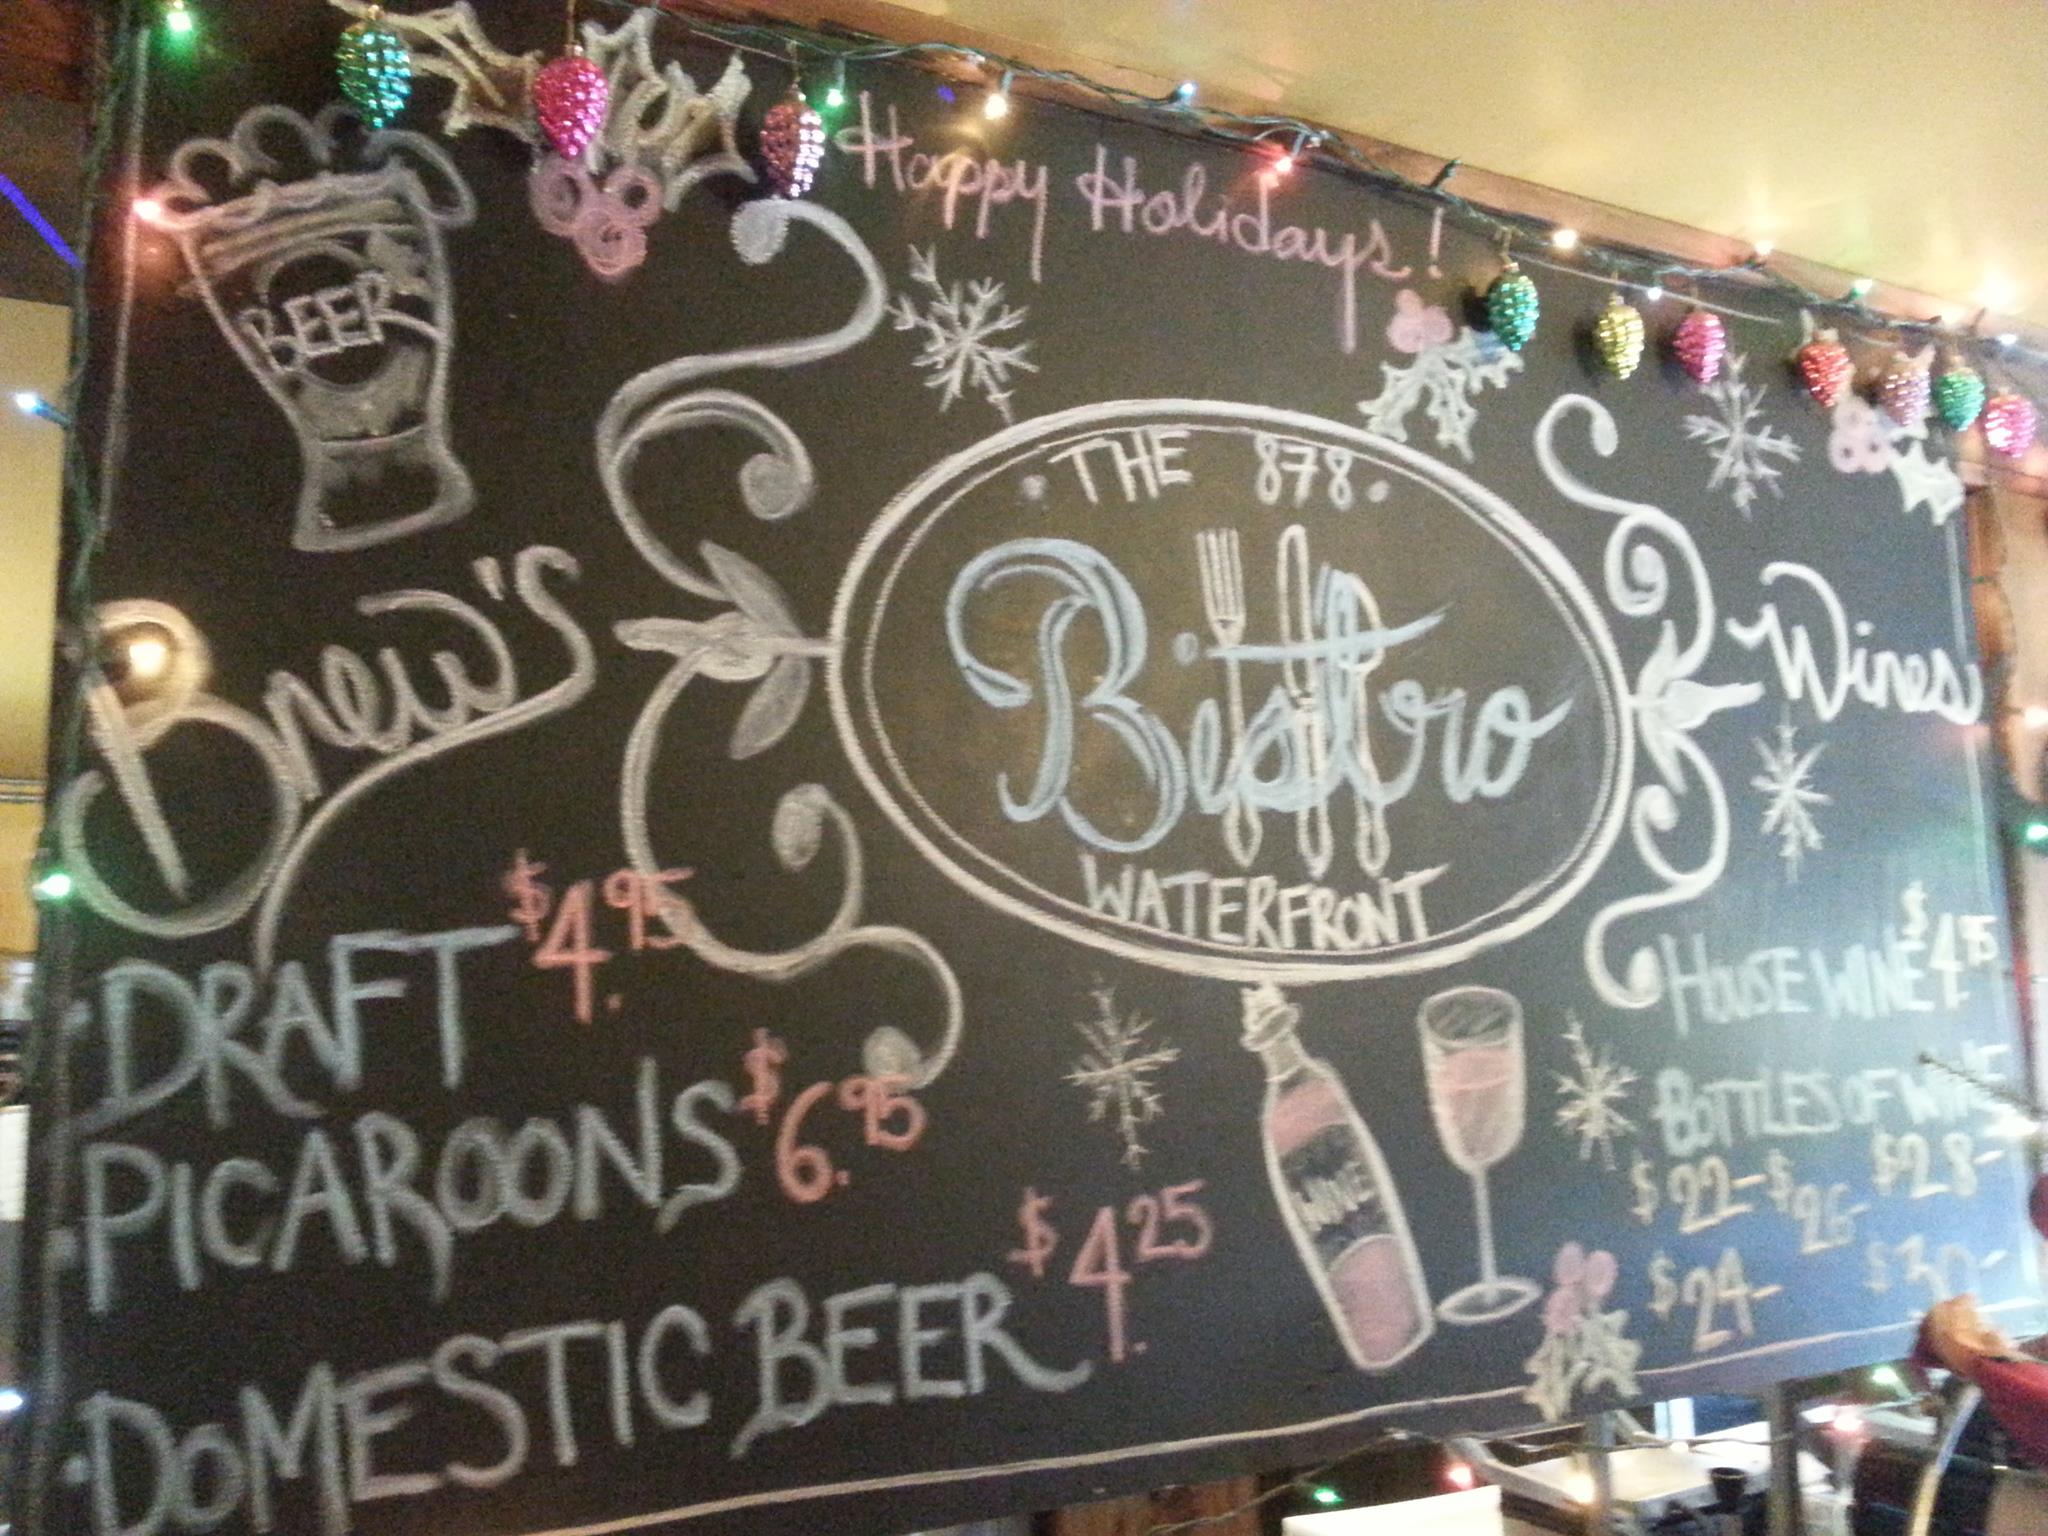 Happy Holidays!
BEER
Brew's
DRAFT $4.95
PICAROONS $6.95
DOMESTIC BEER $4.25
THE 878
Bistro
WATERFRONT
WINE
Wines
HOUSE WINE $4.75
BOTTLES OF WINE
$22- $26- $28-
$24- $30-